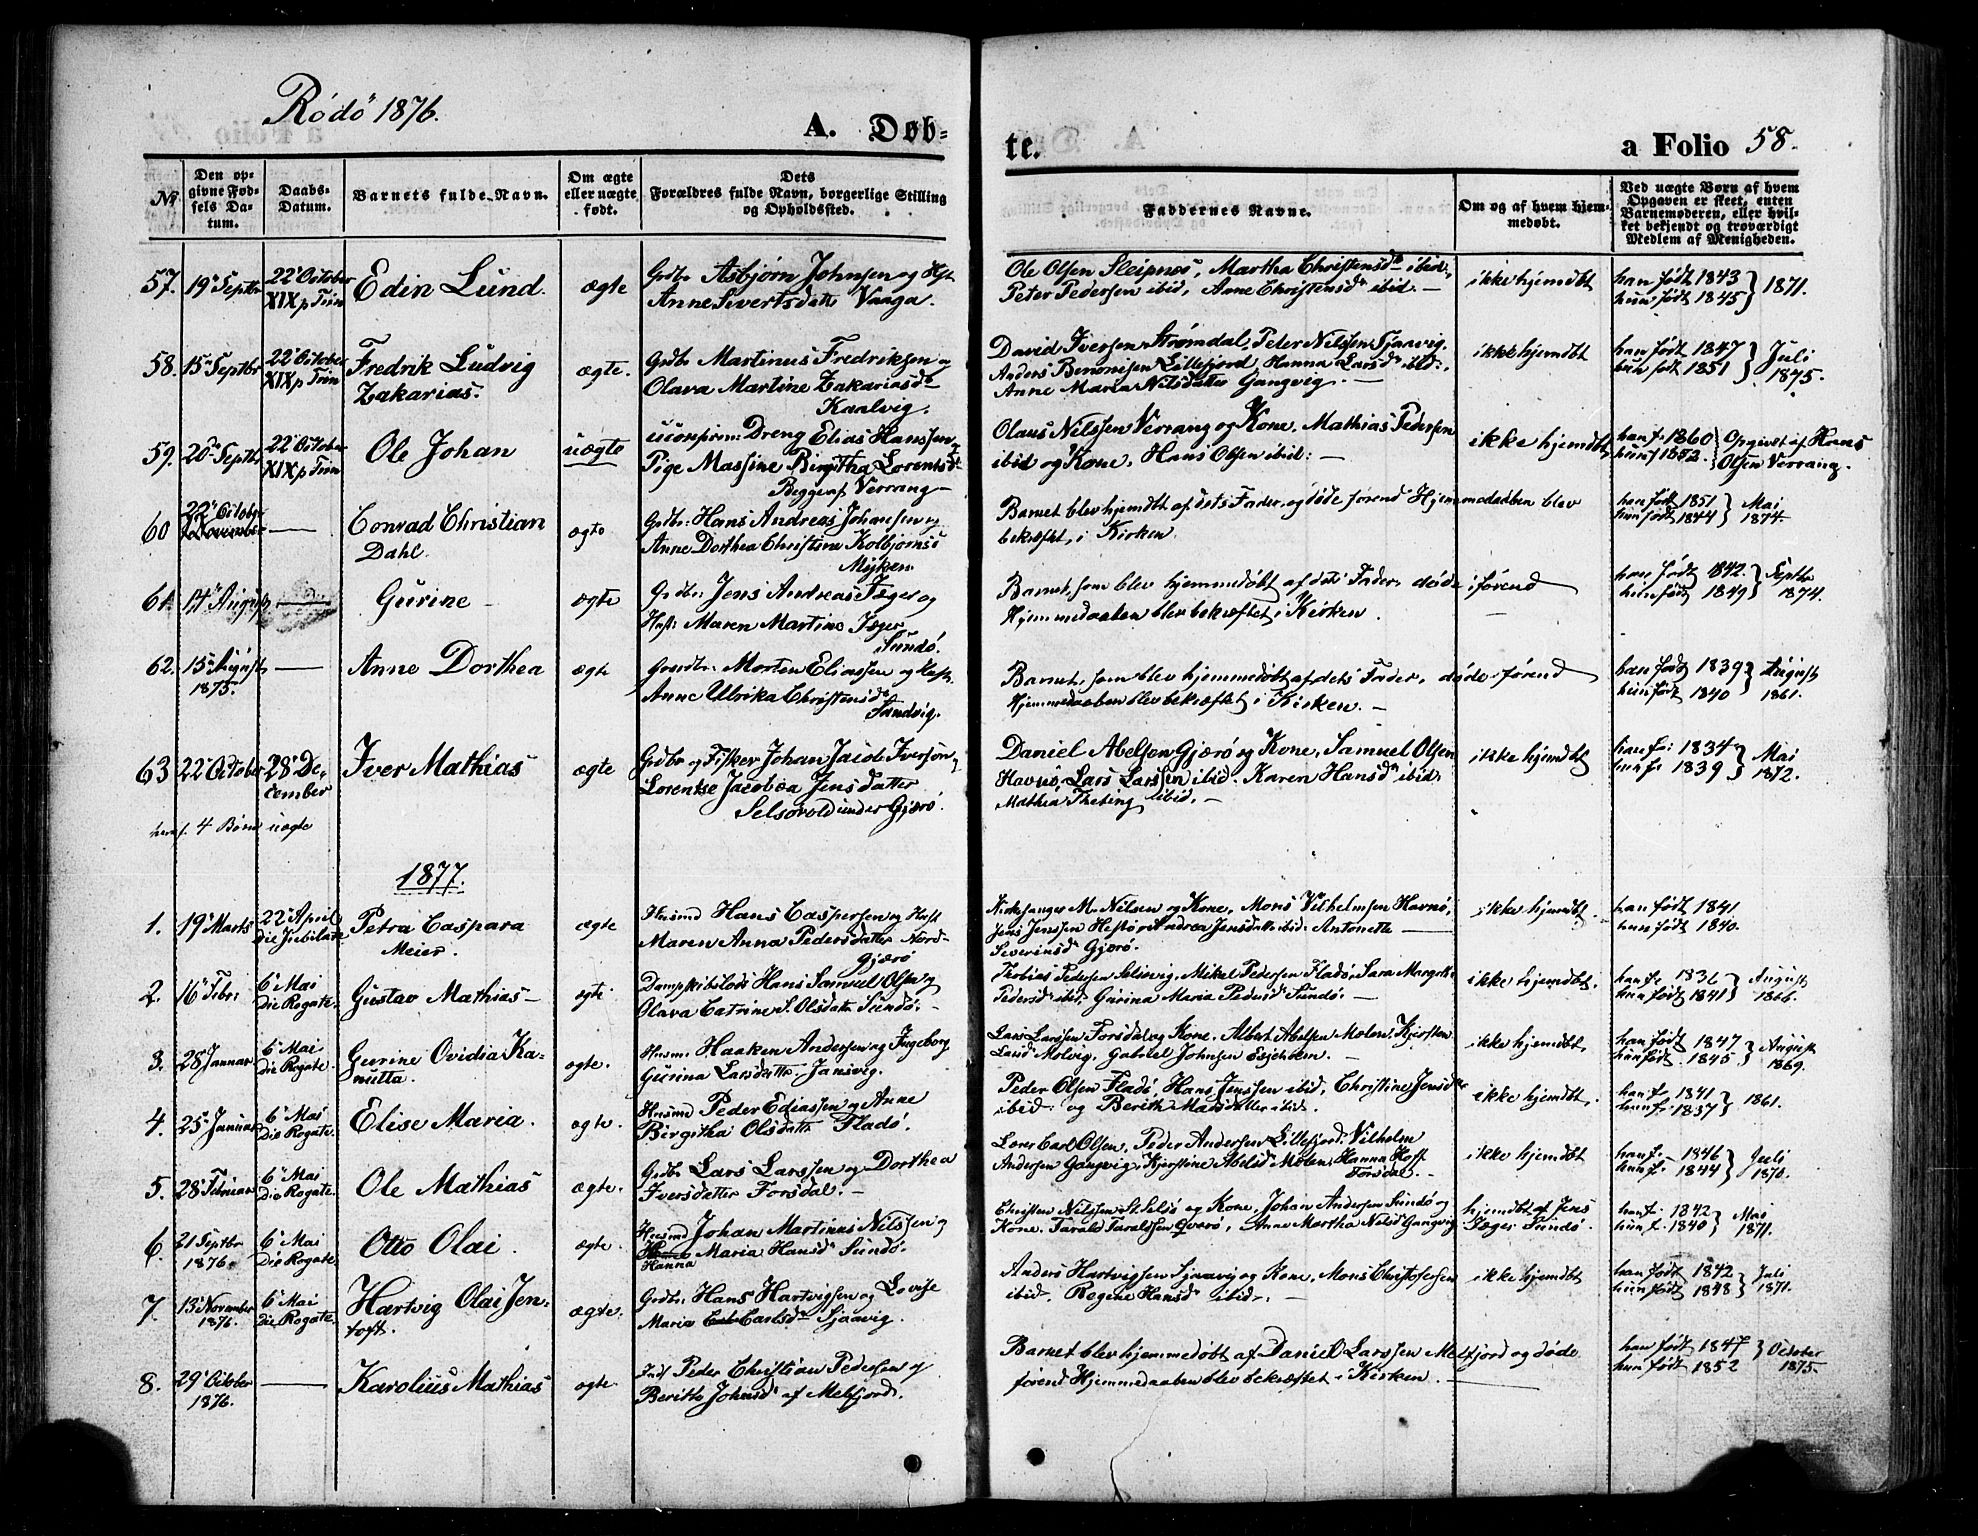 Rödö 1876.
A. Døb-
te.
a Folio 58.
No
Den op-
givne Fød-
sels Da-
tum.
Daabs-
Datum.
Barnets fulde Navn.
Om ægte
eller uægte
født.
Dets
Forældres fulde Navn, borgerlige Stilling
og Opholdssted.
Faddernes Navne.
Om og af hvem hjem-
medøbt.
Ved uægte Børn af hvem
Opgaven er skeet, enten
Barnemoderen, eller hvil-
ket bekjendt og troværdigt
Medlem af Menigheden.
57. 19 Septbr
22 October
XIX p Trin
Edin Lund.
ægte
Grdbr Asbjørn Johnsen og Hst
Anne Sivertsdatt Vaaga.
Ole Olsen Sleipnes, Martha Christensdr ibid:,
Peter Pedersen ibid, Anne Christensdr ibid. —
ikke hjemdøbt
han født 1843
hun født 1845 } 1871.
58. 15 Septbr
22 October
XIX p Trin
Fredrik Ludvig
Zakarias.
ægte.
Grdbr Martinus Fredriksen og
Olava Martine Zakariasdr
Kaalvig.
David Iversen Strømdal, Peter Nilsen Sjaavig,
Anders Benonisen Lillefjord, Hanna Larsdr ibid:,
Anne Maria Nilsdatter Gangvig. —
ikke hjemdøbt
han født 1847
hun født 1851 } Juli
1875.
59. 20de Septbr
22 October
XIX p Trin
Ole Johan
uægte
uconfirm: Dreng Elias Hanssen og
Pige Massine Birgitha Lorentsdr
Begge af Værrang —
Olaus Nilssen Verrang og Kone, Mathias Pedersen
ibid og Kone, Hans Olsen ibid: —
ikke hjemdøbt
han f. 1860
hun f 1852. } Opgivet af Hans
Olsen Verrang.
60
22 October
—
Conrad Christian
Dahl.
ægte
Grdbr: Hans Andreas Johansen og
Anne Dorthea Christine Kolbjørns
Myken
Barnet blev hjemdøbt af dets Fader, og døde førend Hjemmedaaben blev
bekræftet, i Kirken.
han født 1851
hun født 1844 } Mai
1874
61. 14 August
—
Gurine —
ægte
Grdbr: Jens Andreas Jæger og
Hust: Maren Martine Jæger
Sundø.
Barnet, som blev hjemmedøbt af dets Fader døde førend
Hjemmedaaben blev bekræftet i Kirken.
han født 1842.
hun født 1849 } Septbr
1874.
62. 15 August
1875.
—
Anne Dorthea
ægte
Grdbr: Morten Eliassen og Hust.
Anne Ulrika Christensdr
Sandvig.
Barnet, som blev hjemmedøbt af dets Fader, døde førend
Hjemmedaaben blev bekræftet i Kirken. —
han født 1839
hun født 1840 } August
1861.
63 22 October
28 De-
cember
Iver Mathias
ægte
Grdbr og Fisker Johan Jacob Iversen og
Lorentse Jacobæa Jensdatter
Selsovold under Gjærø.
Daniel Abelsen Gjærø og Kone, Samuel Olsen
Havnø, Lars Larssen ibid. Karen Hansdr ibid:
Mathea Theting ibid. —
ikke hjemdøbt
han f: 1834
hun f. 1839 } Mai
1872.
4 Børn uægte
1877.
1. 19 Marts
22 April
Die Jubilate
Petra Caspara
Meier.
ægte
Husmd Hans Caspersen og Hust
Maren Anna Pedersdatter Nord-
Gjærø
Kirkesanger M. Nilsen og Kone, Mons Vilhelmsen Havnø,
Jens Jenssen Hestø Andrea Jensdatt ibid: Antonette —
Severinsdr Gjærø.
ikke hjemdøbt.
han født 1841
hun født 1840.
2. 16 Febr:
6 Mai
Die Rogate.
Gustav Mathias —
ægte
Dampskibslods Hans Samuel Olsen og
Olava Catrine S. Olsdatt Sundø. —
Tobias Pedersen Selsvig, Mikel Pedersen Fladø, Sara Margrete
Pedersdr ibid. Gurina Maria Pedersdr Sundø. —
ikke hjemdøbt.
han f. 1836
hun født 1841 } August
1866.
3. 28 Januar
6 Mai
Die Rogate.
Gurine Ovidia Ka-
nutta.
ægte.
Husm: Haaken Andersen og Ingeborg
Gurina Larsdatter Jansvig.
Lars Larssen Forsdal og Kone, Albert Abelsen Molen, Kjersten
Lund Molvig, Gabriel Johnsen Esjeholmen. —
ikke hjemdøbt.
han født 1847
hun født 1845 } August
1869.
4. 25 Januar
6 Mai
Die Rogate.
Elise Maria.
ægte.
Husmd Peder Ediassen og Anne
Birgitha Olsdatt Fladø.
Peder Olsen Fladø, Hans Jenssen ibid, Christine Jensdr
ibid. og Berith Matsdatter ibid.
ikke hjemdøbt.
han f. 1841
hun f. 1837 } 1861.
5. 28 Februar
6 Mai
Die Rogate.
Ole Mathias
ægte.
Grdbr. Lars Larssen og Dorthea
Iversdatter Forsdal. —
Lærer Carl Olsen, Peder Andersen Lillefjord, Vilhelm
Andersen Gangvig, Kjerstine Abelsdr Molen, Hanna Hoff
Forsdal. —
ikke hjemdøbt
han f. 1846
hun f. 1844 } Juli
1870.
6. 21 Septbr
1876.
6 Mai
Die Rogate
Otto Olai.
ægte.
Husmd Johan Martinus Nilssen og
Hanna Maria Hansdr Sundø.
Christen Nilssen St. Selsø og Kone, Johan Andersen Sundø og
Kone, Tarald Taraldsen Qvarø, Anne Martha Nilsdr Gangvig
hjemdøbt af Jens
Jæger Sundø.
han f. 1842
hun f. 1840 } Mai
1871.
7. 13 November
1876.
6 Mai
Die Rogate.
Hartvig Olai Jen-
toft.
ægte.
Grdbr: Hans Hartvigsen og Lovise
Maria Carlsdr Sjaavig.
Anders Hartvigsen Sjaavig og Kone, Mons Christofersen
ibid. Regine Hansdr ibid. —
ikke hjemdøbt
han født 1842
hun født 1848 } Juli
1871.
8. 29 October
1876.
—
Karolius Mathias
ægte
Inds Peder Christian Pedersen og
Berithe Johnsdr af Melfjord.
Barnet blev hjemmedøbt af Daniel Larssen Melfjord og døde
førend Hjemmedaaben blev bekræftet i Kirken. —
han født 1847
hun født 1852 } October
1875.